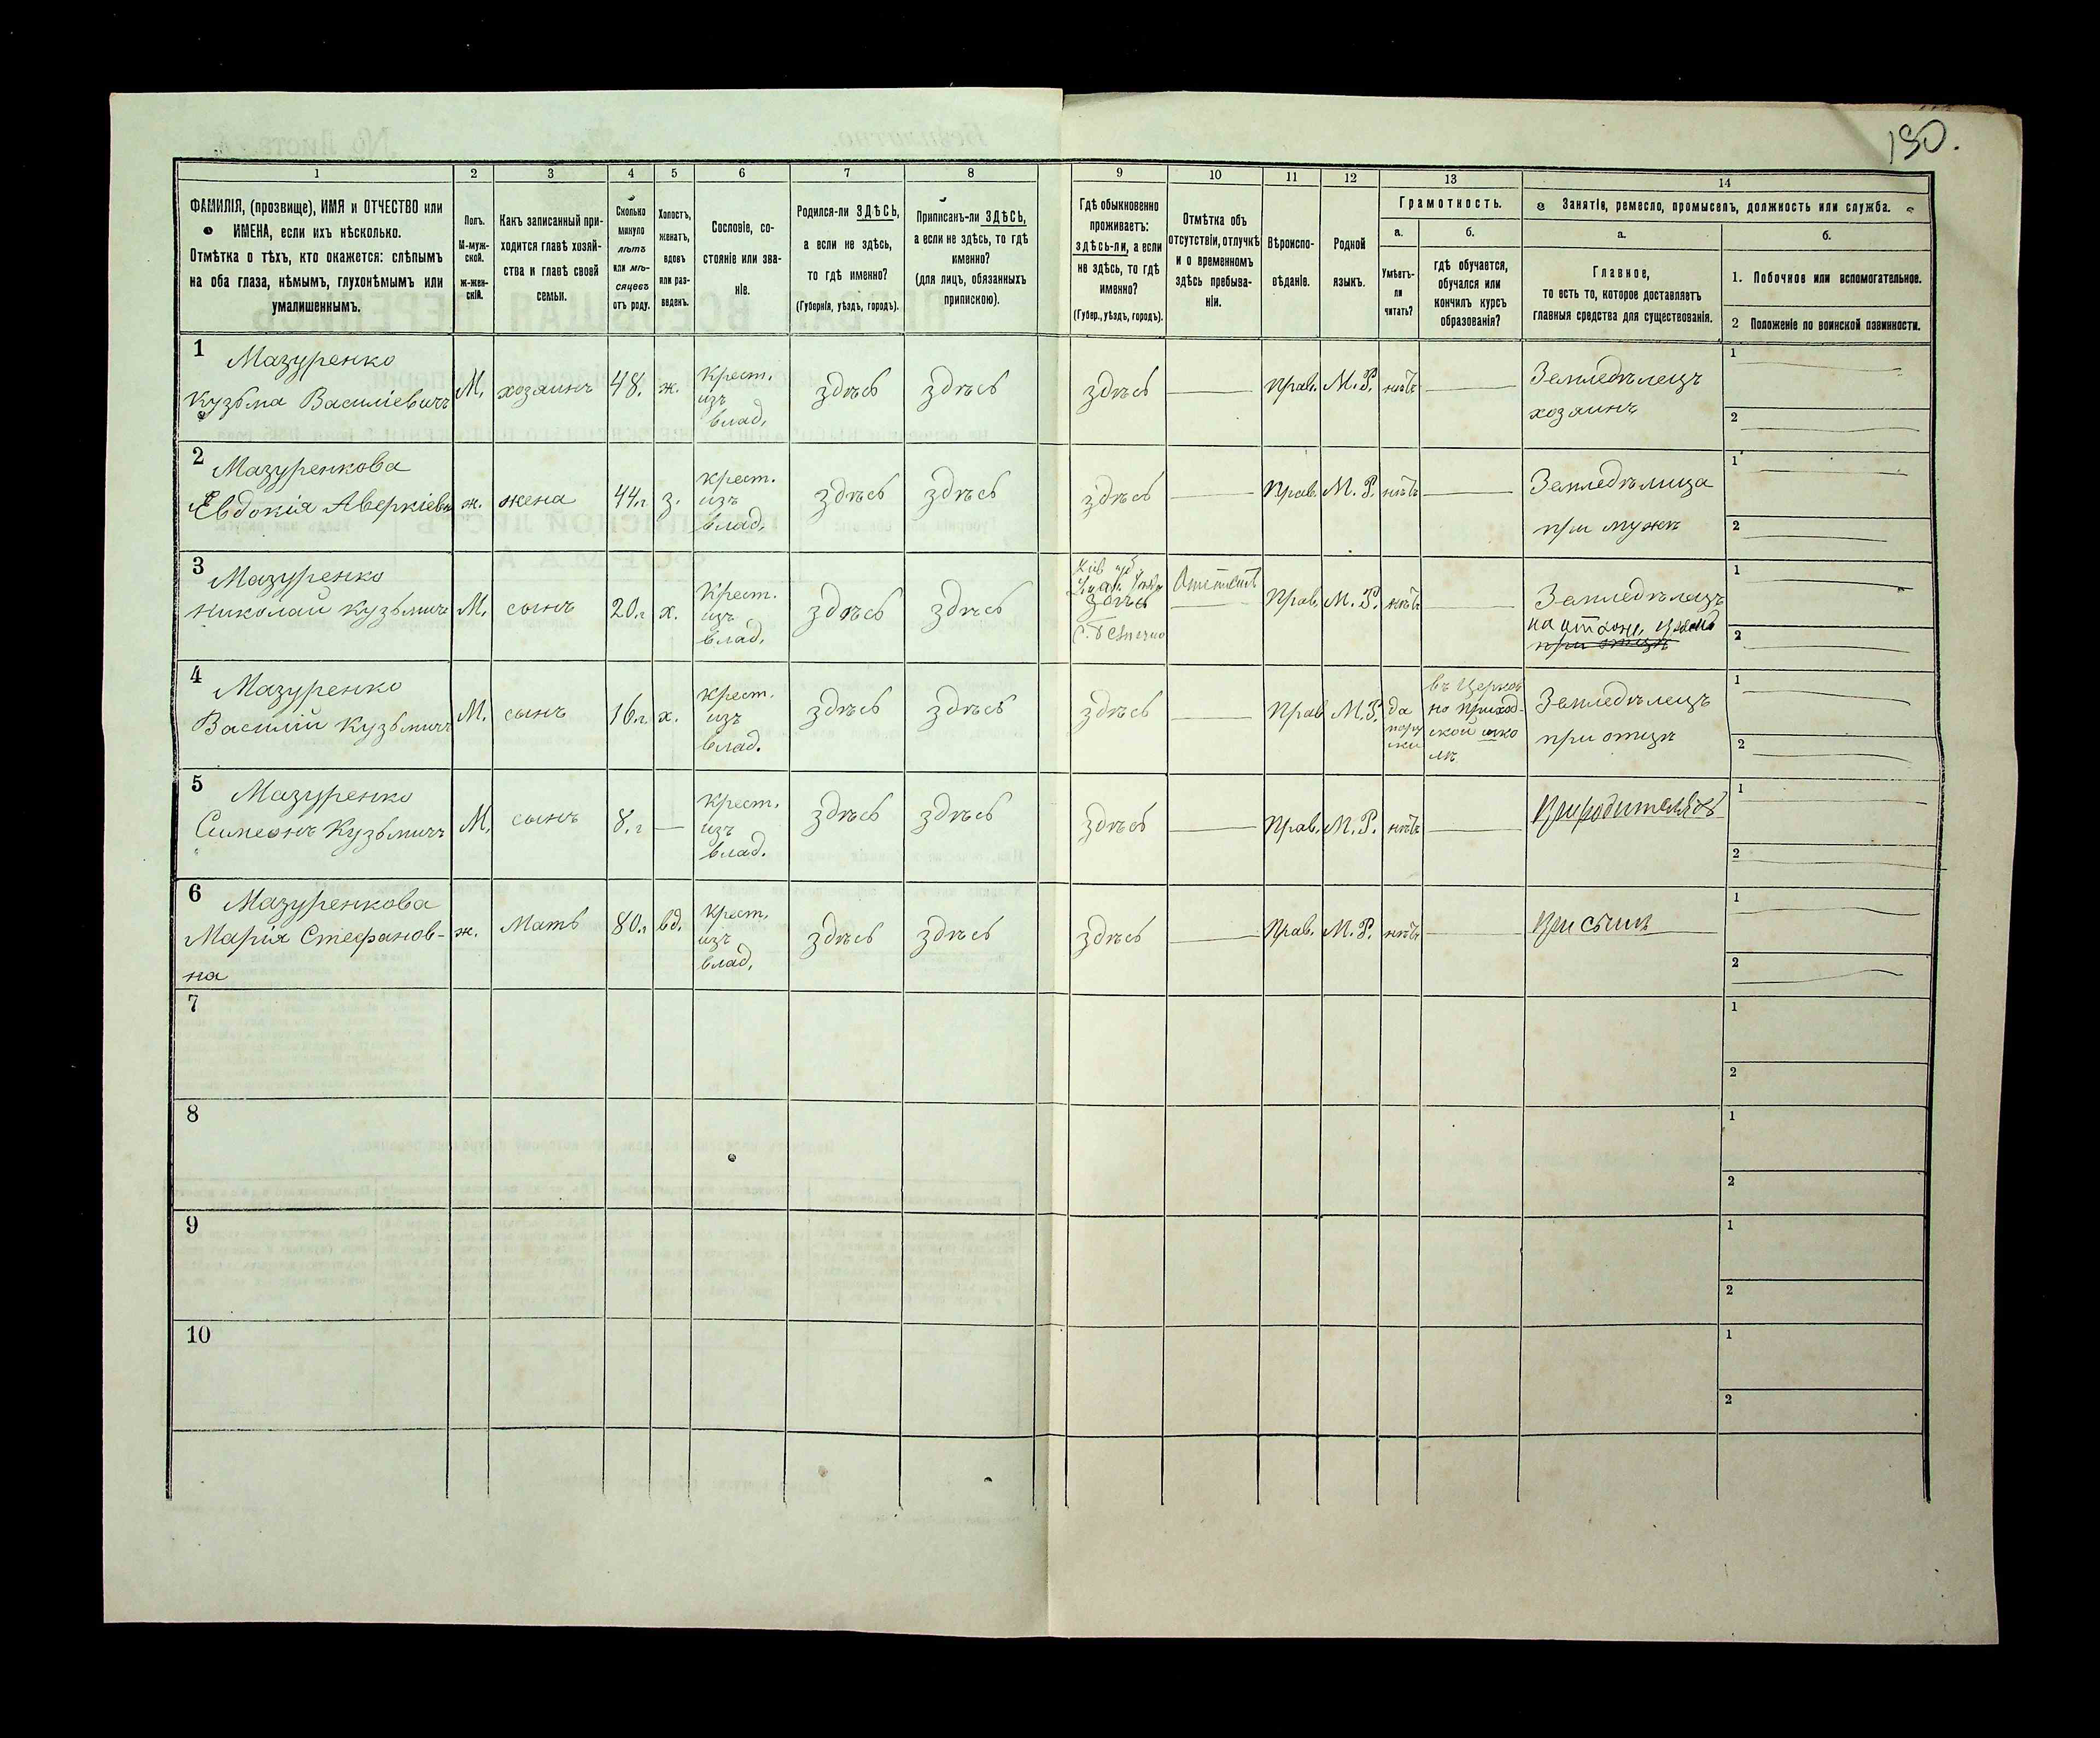 190.
1 2 3 4 5 6 7 8 9 10 11 12 13 14
ФАМИЛІЯ, (прозвище), ИМЯ и ОТЧЕСТВО или
ИМЕНА, если ихъ нѣсколько.
Отмѣтка о тѣхъ, кто окажется: слѣпымъ
на оба глаза, нѣмымъ, глухонѣмымъ или
умалишеннымъ.
Полъ.
М-муж-
ской.
ж-жен-
скій.
Какъ записанный при-
ходится главѣ хозяй-
ства и главѣ своей
семьи.
Сколько
минуло
лѣтъ
или мѣ-
сяцевъ
отъ роду.
Холостъ,
женатъ,
вдовъ
или раз-
веденъ.
Сословіе, со-
стояніе или зва-
ніе.
Родился-ли ЗДѢСЬ,
а если не здѣсь,
то гдѣ именно?
(Губернія, уѣздъ, городъ).
Приписанъ-ли ЗДѢСЬ,
а если не здѣсь, то гдѣ
именно?
(для лицъ, обязанныхъ
припискою).
Гдѣ обыкновенно
проживаетъ:
здѣсь-ли, а если
не здѣсь, то гдѣ
именно?
(Губер., уѣздъ, городъ).
Отмѣтка объ
отсутствіи, отлучкѣ
и о временномъ
здѣсь пребыва-
ніи.
Вѣроиспо-
вѣданіе.
Родной
языкъ.
Грамотность.
а.
Умѣетъ-
ли
читать?
б.
гдѣ обучается,
обучался или
кончилъ курсъ
образованія?
Занятіе, ремесло, промыселъ, должность или служба.
а.
Главное,
то есть то, которое доставляетъ
главныя средства для существованія.
б.
1. Побочное или вспомогательное.
2 Положеніе по воинской повинности.
1
Мазуренко
Кузьма Василіевичъ
М.
хозяинъ
48.
ж.
Крест.
изъ
влад.
здѣсь
здѣсь
здѣсь
прав.
М. Р.
нѣтъ
Земледѣлецъ
хозяинъ
1
2
2
Мазуренкова
Евдокія Аверкіевн
ж.
жена
44.г
з.
крест.
изъ
влад.
здѣсь
здѣсь
здѣсь
прав.
М. Р.
нѣтъ
Земледѣлица
при мужѣ
1
2
3
Мазуренко
Николай Кузьмичъ
М.
сынъ
20.г
х.
Крест.
изъ
влад.
здѣсь
здѣсь
здѣсь
прав.
М. Р.
нѣтъ
Земледѣлецъ
при отцѣ
1
2
4
Мазуренко
Василій Кузьмичъ
М.
сынъ
16.г
х.
крест.
изъ
влад.
здѣсь
здѣсь
здѣсь
прав
М.Р.
да
въ Церков
но приход-
ской шко
лѣ
Земледѣлецъ
при отцѣ
1
2
5
Мазуренко
Симеонъ Кузьмичъ
М.
сынъ
8.г
Крест.
изъ
влад.
здѣсь
здѣсь
здѣсь
прав.
М. Р.
нѣтъ
При родителяхъ
1
2
6
Мазуренкова
Марія Стефанов-
на
ж.
Мать
80.г
вд.
Крест.
изъ
влад.
здѣсь
здѣсь
здѣсь
прав.
М. Р.
нѣтъ
При сынѣ
1
2
7
1
2
8
1
2
9
1
2
10
1
2